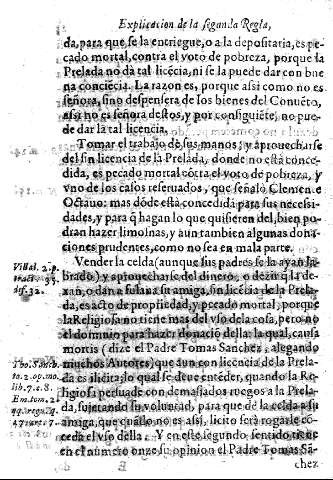 Explicacion de la segunda Regla,
da, para que se la entriegue, o a la depositaria, es pe-
cado mortal, contra el voto de pobreza, porque la
Prelada no dà tal licẽcia, ni se la puede dar con bue
na conciẽcia. La razon es, porque assi como no es
señora, sino despensera de los bienes del Conuẽto,
assi no es señora destos, y por consiguiẽte, no pue-
de dar la tal licencia.
Tomar el trabajo de sus manos, y aprouecharse
del sin licencia de la Prelada, donde no està conce-
dida, es pecado mortal cõtra el voto de pobreza, y
vno de los casos reseruados, que señalò Clemen.e
Octauo: mas dõde està concedida para sus necesi-
dades, y para q̃ hagan lo que quisieren del, bien po-
dran hazer limosnas, y aun tambien algunas dona-
ciones prudentes, como no sea en mala parte.
Vender la celda (aunque sus padres se la ayan la-
brado) y aprouecharse del dinero, o dezir q̃ la de-
xan, o dan a fulana su amiga, sin licẽcia de la Prela-
da, es acto de propiedad, y pecado mortal, porque
la Religiosa no tiene mas del vso de la cosa, pero no
el dominio para hazer donaciõ della: la qual, causa
mortis (dize el Padre Tomas Sanchez, alegando
muchos Autores) que aun con licencia de la Prela-
da es ilicita; lo qual se deue entẽder, quando la Re-
ligiosa persuade con demasiados ruegos a la Prela
da, sujetando su voluntad, para que dè la celda a su
amiga, que quãdo no es assi, licito serà rogarle cõ-
ceda el vso della. Y en este segundo sentido tiene
en el numero onze su opinion el Padre Tomas Sã-
chez
Villal. 2. p.
35.
dif. 32.
Tho. Sanch.
to. 2. op. mo.
lib. 7. c. 8.
Em. tom. 2.